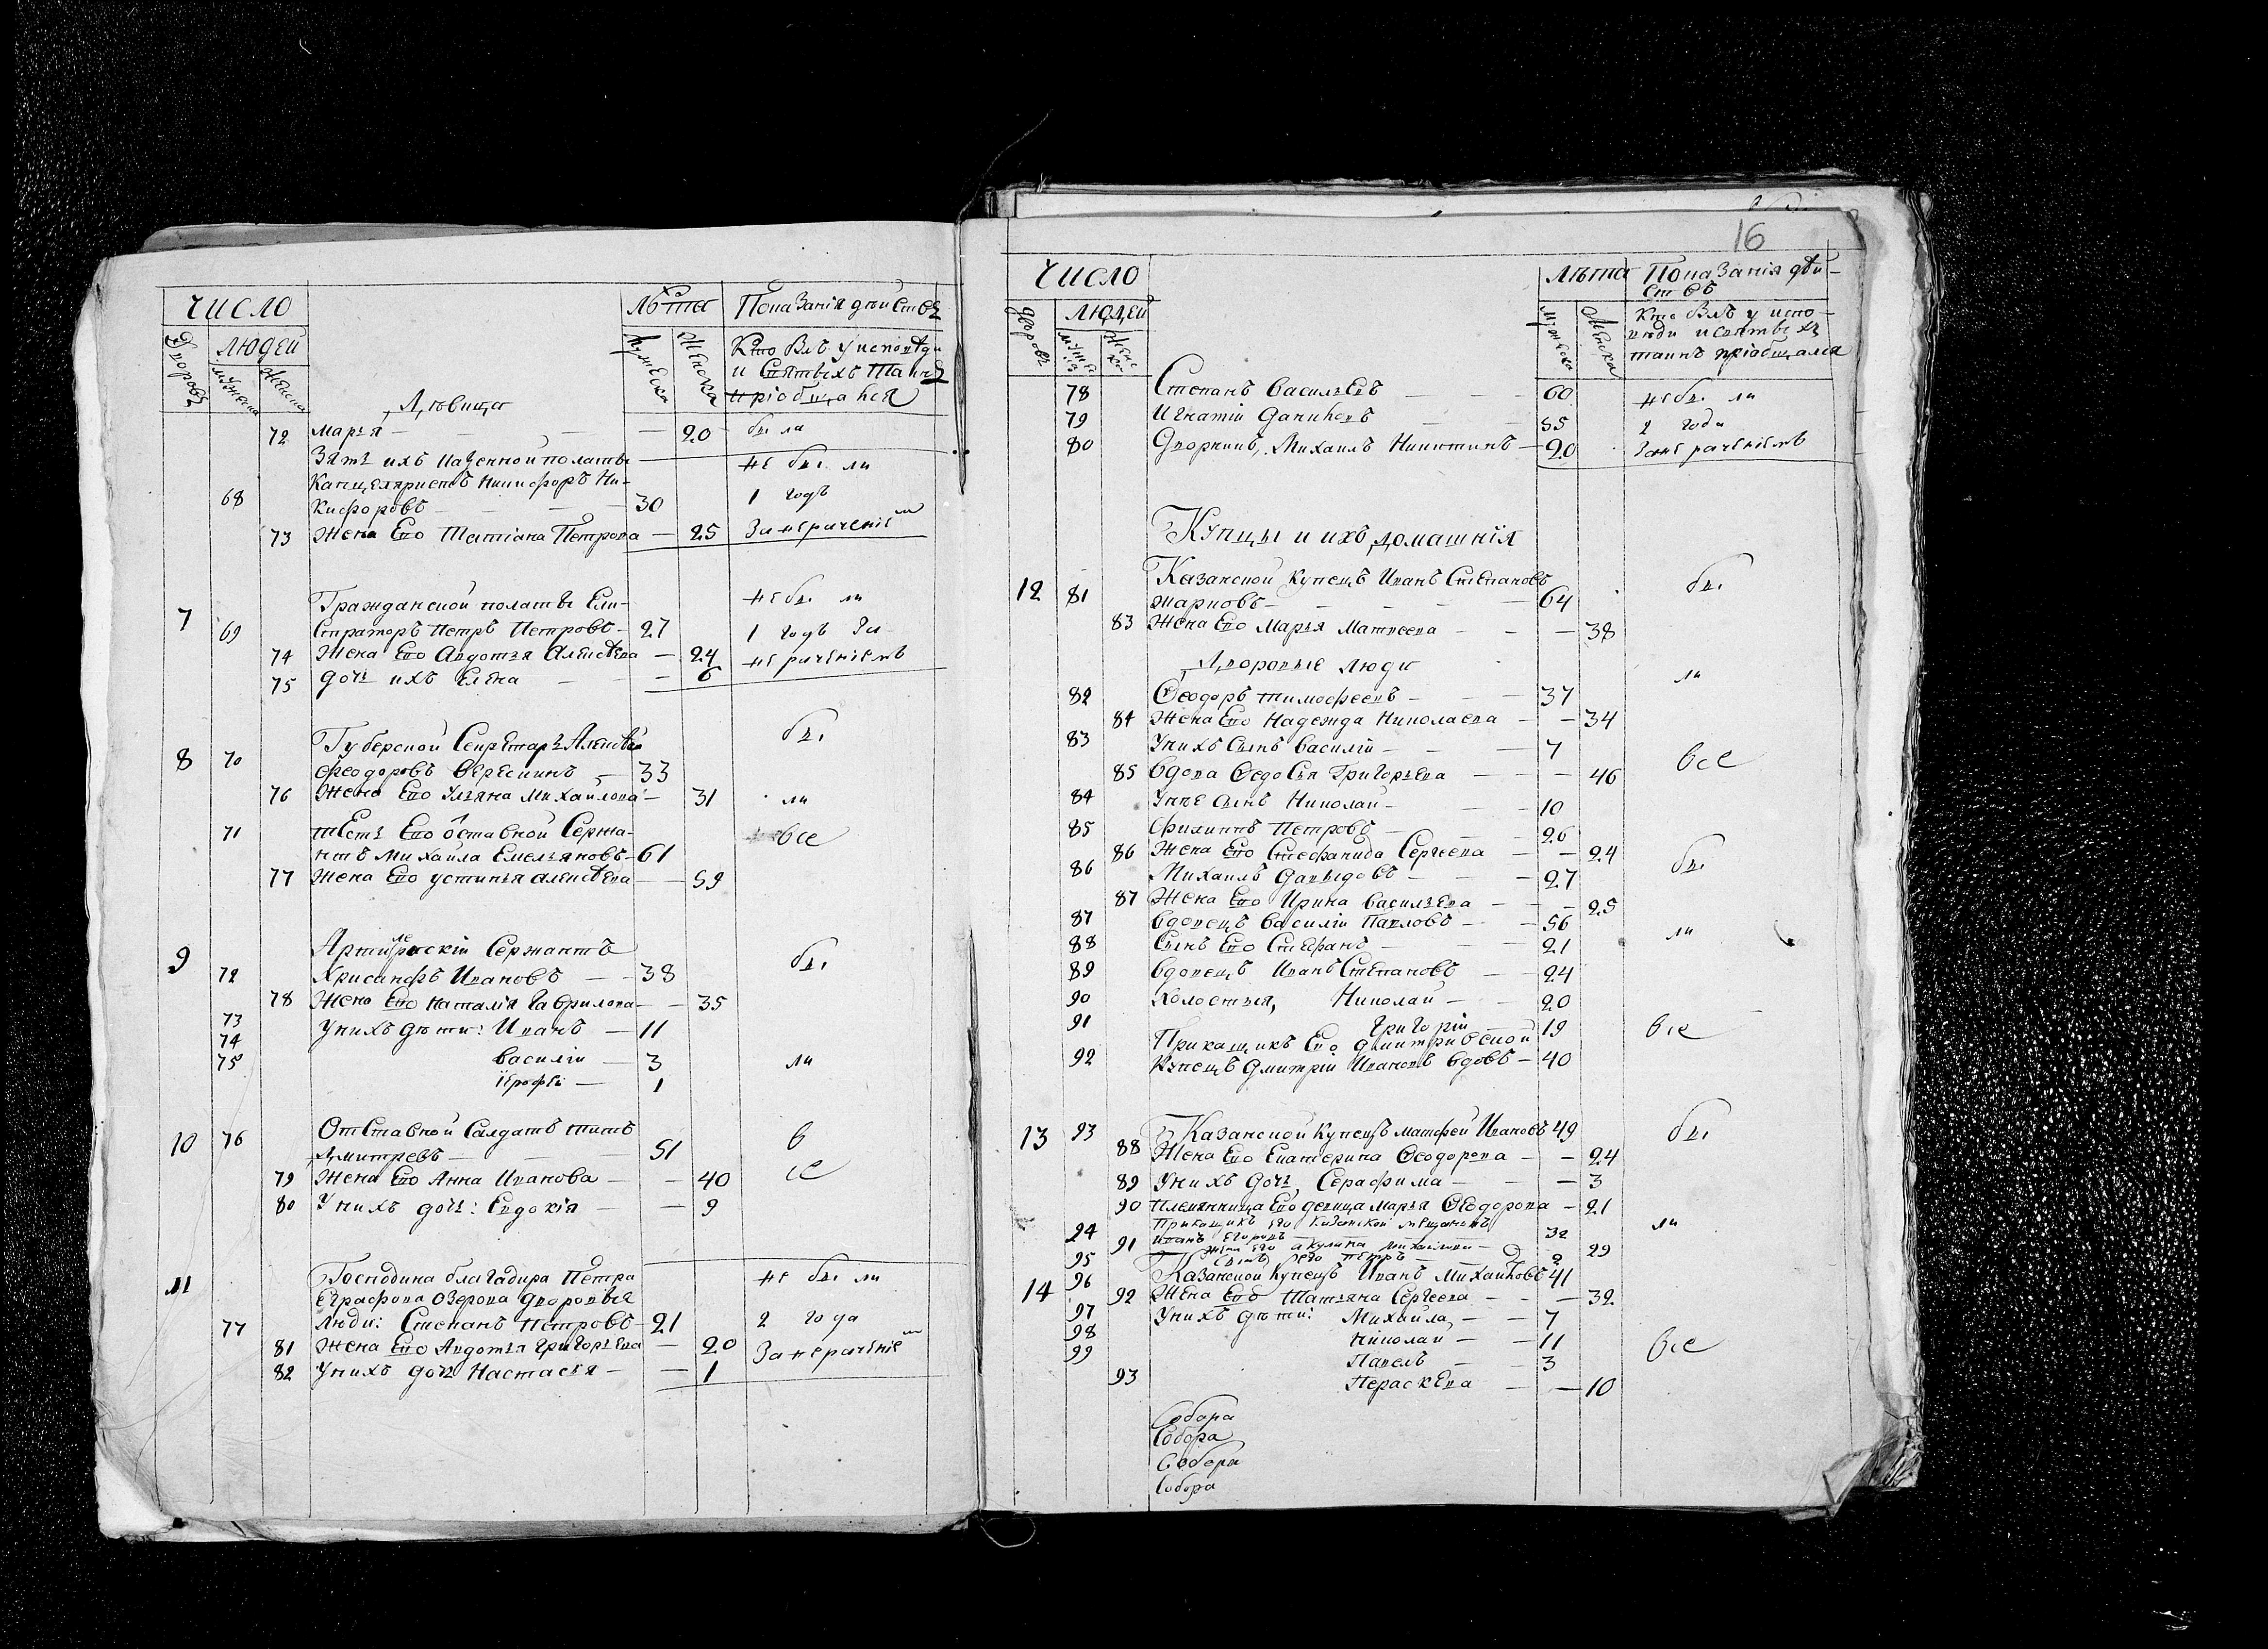 ЧИСЛО
Лѣта
Показанія дѣйствъ
Дворовъ
ЛЮДЕЙ
Мужеска
Женска
Мужеска
Женска
Кто Былъ у исповѣди
и Святыхъ Таинъ
пріобщался
Дѣвица
72 Марья — — — 20 были
Зять ихъ Казенной полаты
не были
Канцеляристъ Никифоръ Ни-
68 кифоровъ — — 30 1 годъ
73 Жена Его Татіана Петрова — 25 Занераченіем
Гражданской полаты Еги-
не были
7 69 Страторъ Петръ Петровъ — 27 1 годъ За
74 Жена Его Авдотья Алексѣева — 24 нераченіемъ
75 дочь ихъ Елена — — 6
Губерской Секретарь Алексѣй
бы
8 70 Феодоровъ Вересинъ — 33
76 Жена Его Ульяна Михайлова — 31 ли
71 тесть Его Отставной Сержа-
все
нтъ Михайла Емельяновъ — 61
77 Жена Его Устинья Алексѣева — 59
Артилерискій Сержантъ
9 72 Хрисанфъ Ивановъ — 38 бы
78 Жена Его Наталія Гаврилова — 35
73 У нихъ дѣти: Иванъ — 11
74 Василій — 3 ли
75 Ерофей — 1
10 76 Отставной Салдатъ Титъ
в
Дмитревъ — — 51
79 Жена Его Анна Иванова — 40 се
80 У нихъ дочь: Евдокія — — 9
11 Господина благадира Петра
не были
Еграфова Озерова дворовыя
77 Люди: Степанъ Петровъ — 21 2 года
81 Жена Его Авдотья Григорьева — 20 Занераченіем
82 У нихъ дочь Настасья — — 1
16
ЧИСЛО
Лѣта
Показанія дѣй-
ствъ
дворовъ
ЛЮДЕЙ
Мужеска
Женска
Кто Былъ у испо-
вѣди и святыхъ
таинъ пріобщался
78 Степанъ Васильевъ — — 60 не были
79 Игнатій Данилевъ — 55 2 года
80 Дворникъ, Михаилъ Никитинъ — 20 Занераченіемъ
Купцы и ихъ домашнія
Казанской купецъ Иванъ Степановъ
бы
12 81 Жарковъ — — — — 64
83 Жена Его Марья Матвеева — — 38
Дворовые люди
ли
82 Феодоръ Тимофеевъ — — 37
84 Жена Его Надежда Николаева — — 34
83 У нихъ Сынъ Василій — — 7
все
85 Вдова Федосья Григорьева — — 46
84 У нее сынъ Николай — — 10
85 Филиппъ Петровъ — — 26
86 Жена Его Стефанида Сергеева — — 24
бы
86 Михаилъ Давыдовъ — — 27
87 Жена Его Ирина Васильева — — 25
87 Вдовецъ Василій Павловъ — — 56
ли
88 Сынъ Его Стефанъ — — 21
89 Вдовецъ Иванъ Степановъ — 24
90 Холостыя, Николай — — 20
91 Григорій — 19 все
Прикащикъ Его
92 Купецъ Дмитрій Ивановъ Вдовъ — 40
13 93 Казанской Купецъ Матфей Ивановъ 49 бы
88 Жена Его Екатерина Феодорова — — 24
89 У нихъ дочь, Серафима — — — 3
90 Племянница Его девица Марья Феодорова — 21
Прикащикъ его Казанской мещанинъ
ли
94 Иванъ Егоровъ — 32
91 Жена его Акулина Михайлова — 29
95 Сынъ его Петръ — 2
14 96 Казанской Купецъ Иванъ Михайловъ 41
92 Жена Его Татьяна Сергеева — — 32
97 У нихъ дѣти: Михайла, — — 7
98 Николай — — 11 все
99 Павелъ — — 3
93 Пераскева — — 10
Собора
Собора
Собора
Собора